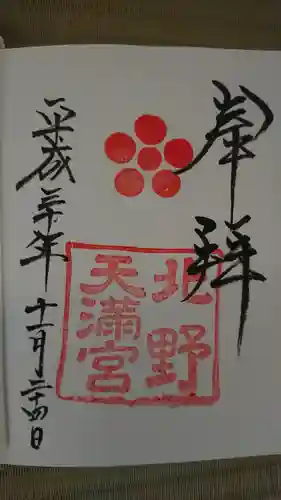 奉拝
北野
天満宮
平成三十年十一月二十四日